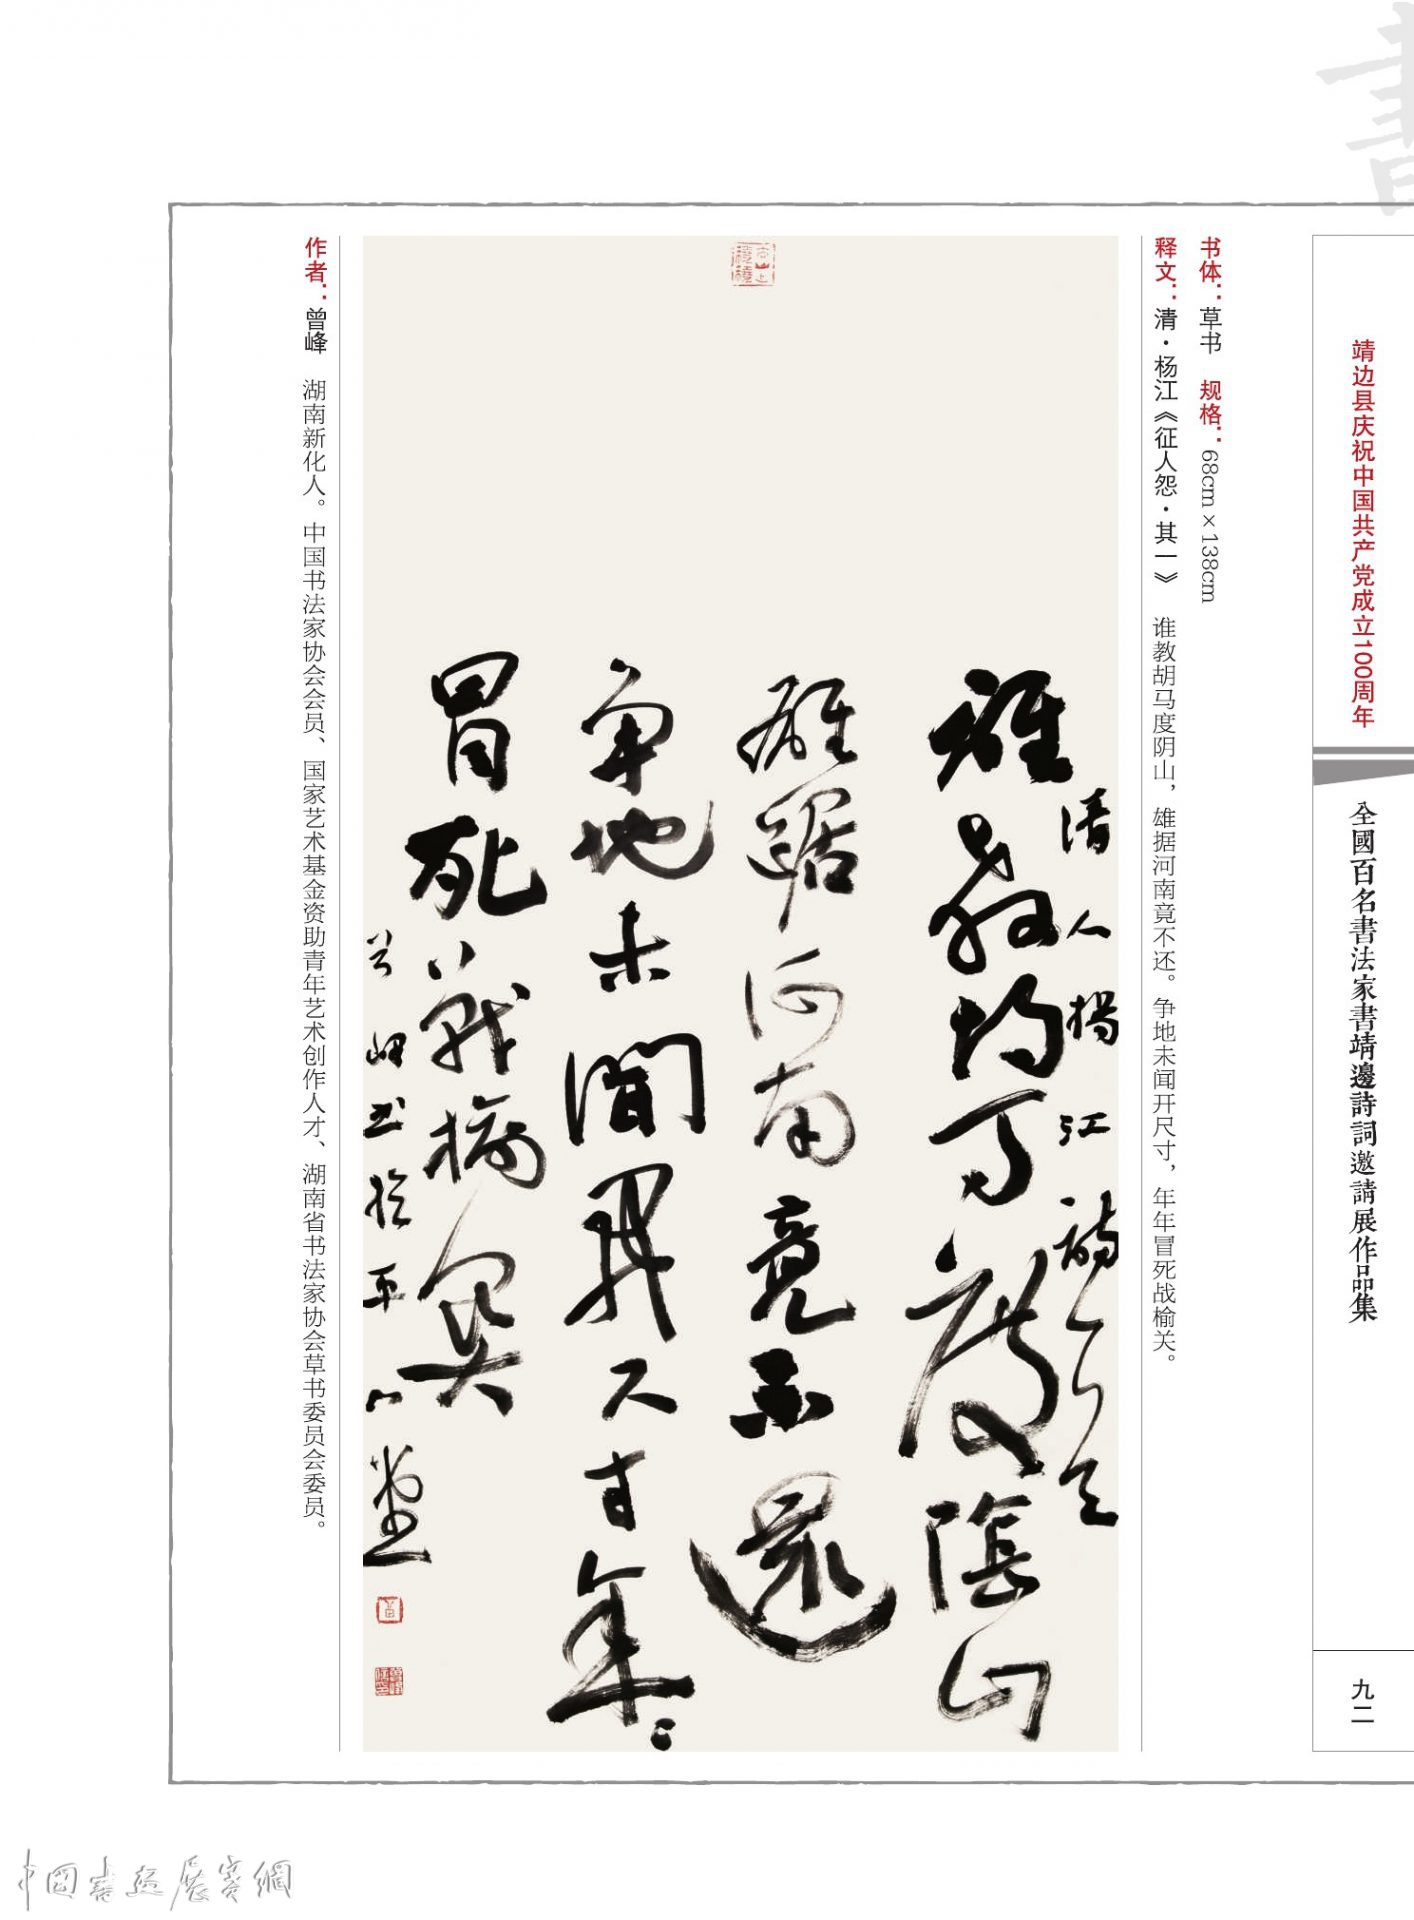 書
靖边县庆祝中国共产党成立100周年
全國百名書法家書靖邊詩詞邀請展作品集
九二
书体：草书 规格：68cm×138cm
释文：清·杨江《征人怨·其一》 谁教胡马度阴山，雄据河南竟不还。争地未闻开尺寸，年年冒死战榆关。
清人楊江詩
誰教胡馬度陰山
雄踞河南竟不還
爭地未聞開尺寸年〻
冒死戰榆關
曾峰书於平
作者：曾峰 湖南新化人。中国书法家协会会员、国家艺术基金资助青年艺术创作人才、湖南省书法家协会草书委员会委员。
中國書畫展賽網